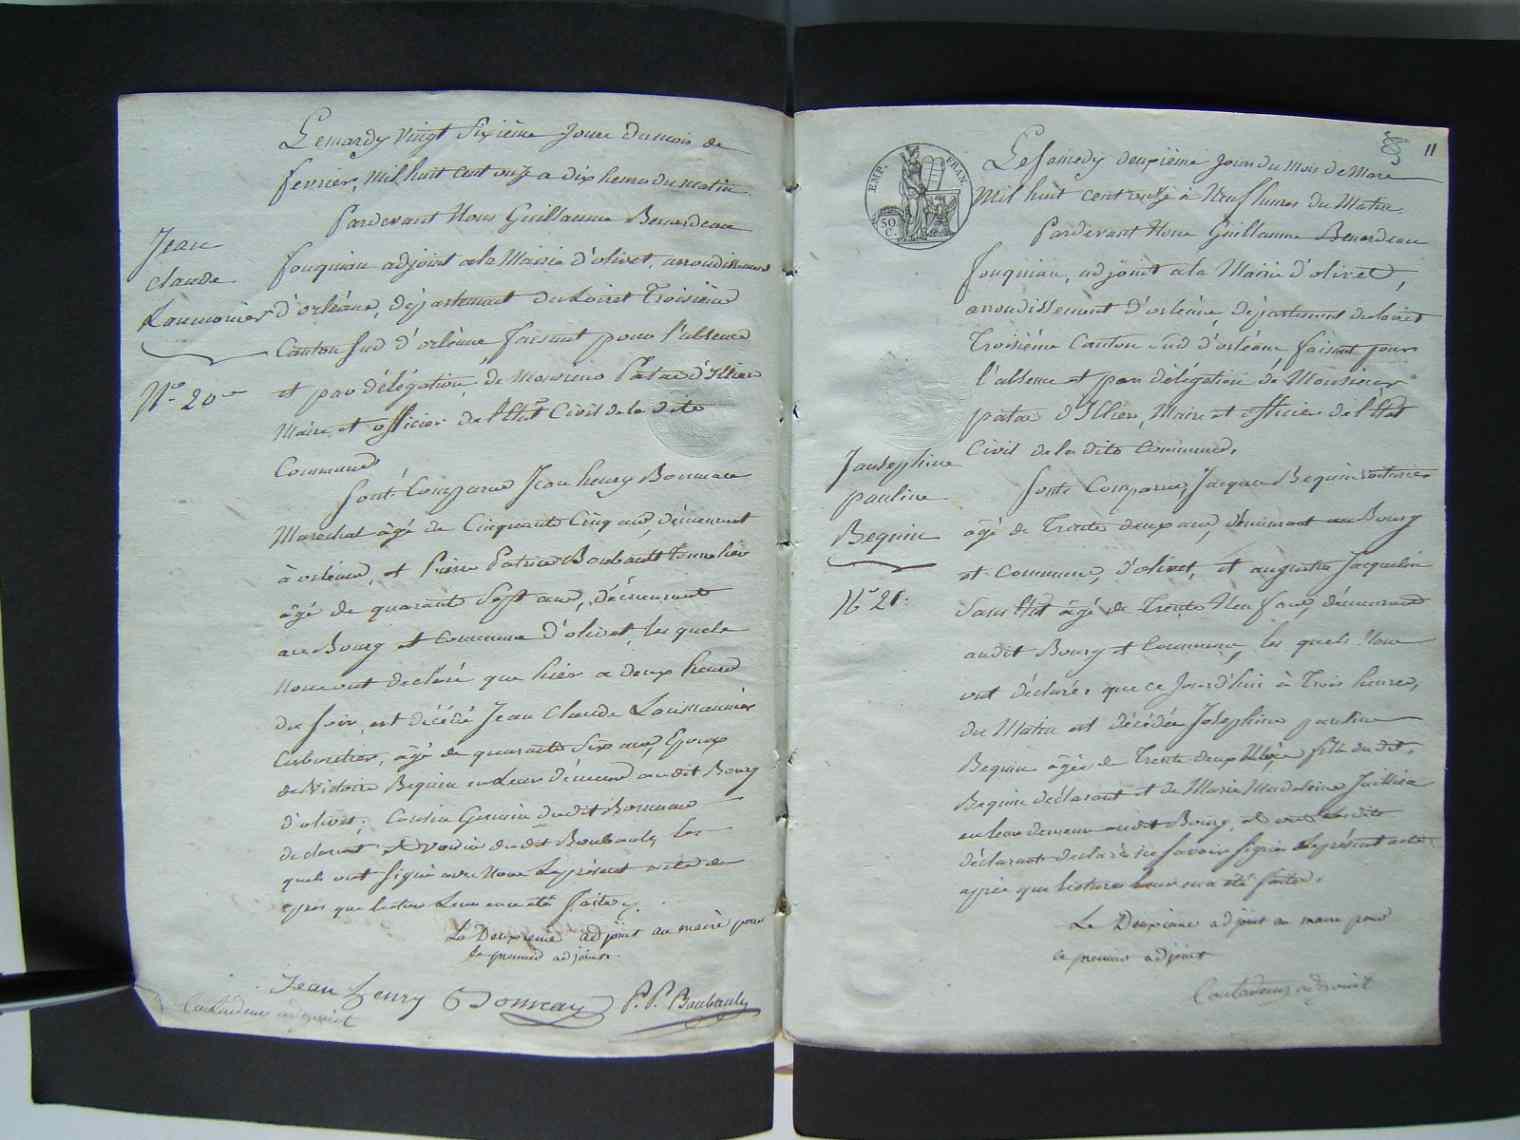 Le mardy vingt sixième Jour du mois de
fevrier, mil huit cent onze a dix heures du matin
Pardevant Nous Guillaume Benardeau
fouqueau adjoint a la Mairie d'olivet, arrondissement
d'orléans, département du Loiret Troisième
Canton sud d'orléans faisant pour l'absence
et par délégation de Monsieur Patas d'Illier
Maire et officier de l'Etat Civil de la dite
Commune
Sont Comparus Jean henry Bonneau
Maréchal âgé de Cinquante Cinq ans, demeurant
à orléans, et Pierre Patrice Boubault tonnelier
âgé de quarante Sept ans, demeurant
au Bourg et Commune d'olivet, les quels
Nous ont declaré que hier a deux heures
du soir est décédé Jean Claude
Cabaretier, âgé de quarante Six ans, Epoux
de Victoire Bequin en Leur demeure au dit Bourg
d'olivet; Cousin Germain du dit Bonneau
declarant et voisin du dit Boubault, les
quels ont signé avec Nous Le présent acte
après que lecture Leur en a été faite.
Le Deuxieme adjoint au maire pour
le premier adjoint
Jean henry Bonneau P. P. Boubault
adjoint
Jean
Claude
N.° 20
11
EMP. FRAN.
50
C.
Le Samedy deuxième Jour du Mois de Mars
Mil huit cent onze à Neuf heures du Matin.
Pardevant Nous Guillaume Benardeau
fouqueau, adjoint a la Mairie d'olivet,
arrondissement d'orléans, département du loiret
Troisième Canton sud d'orléans, faisant pour
l'absence et par délégation de Monsieur
patas d'Illier, Maire et officier de l'Etat
Civil de la dite Commune.
Sont Comparus, Jacques Bequin
âgé de Trente deux ans, demeurant au Bourg
et Commune, d'olivet, et augustin Jacquelin
Sans Etat âgé de Trente Neuf ans, demeurant
audit Bourg et Commune, les quels Nous
ont déclaré que ce Jourd'hui à Trois heures,
du Matin est décédée Josephine pauline
Bequin âgée de Trente deux Mois fille du dit
Bequin déclarant et de Marie Madeleine
en leur demeure audit Bourg, et ont les dits
déclarants declaré ne savoir signer le présent acte
après que lecture leur en a été faite.
Le Deuxieme adjoint au maire pour
le premier adjoint
adjoint
Josephine
pauline
Bequin
N.° 21.